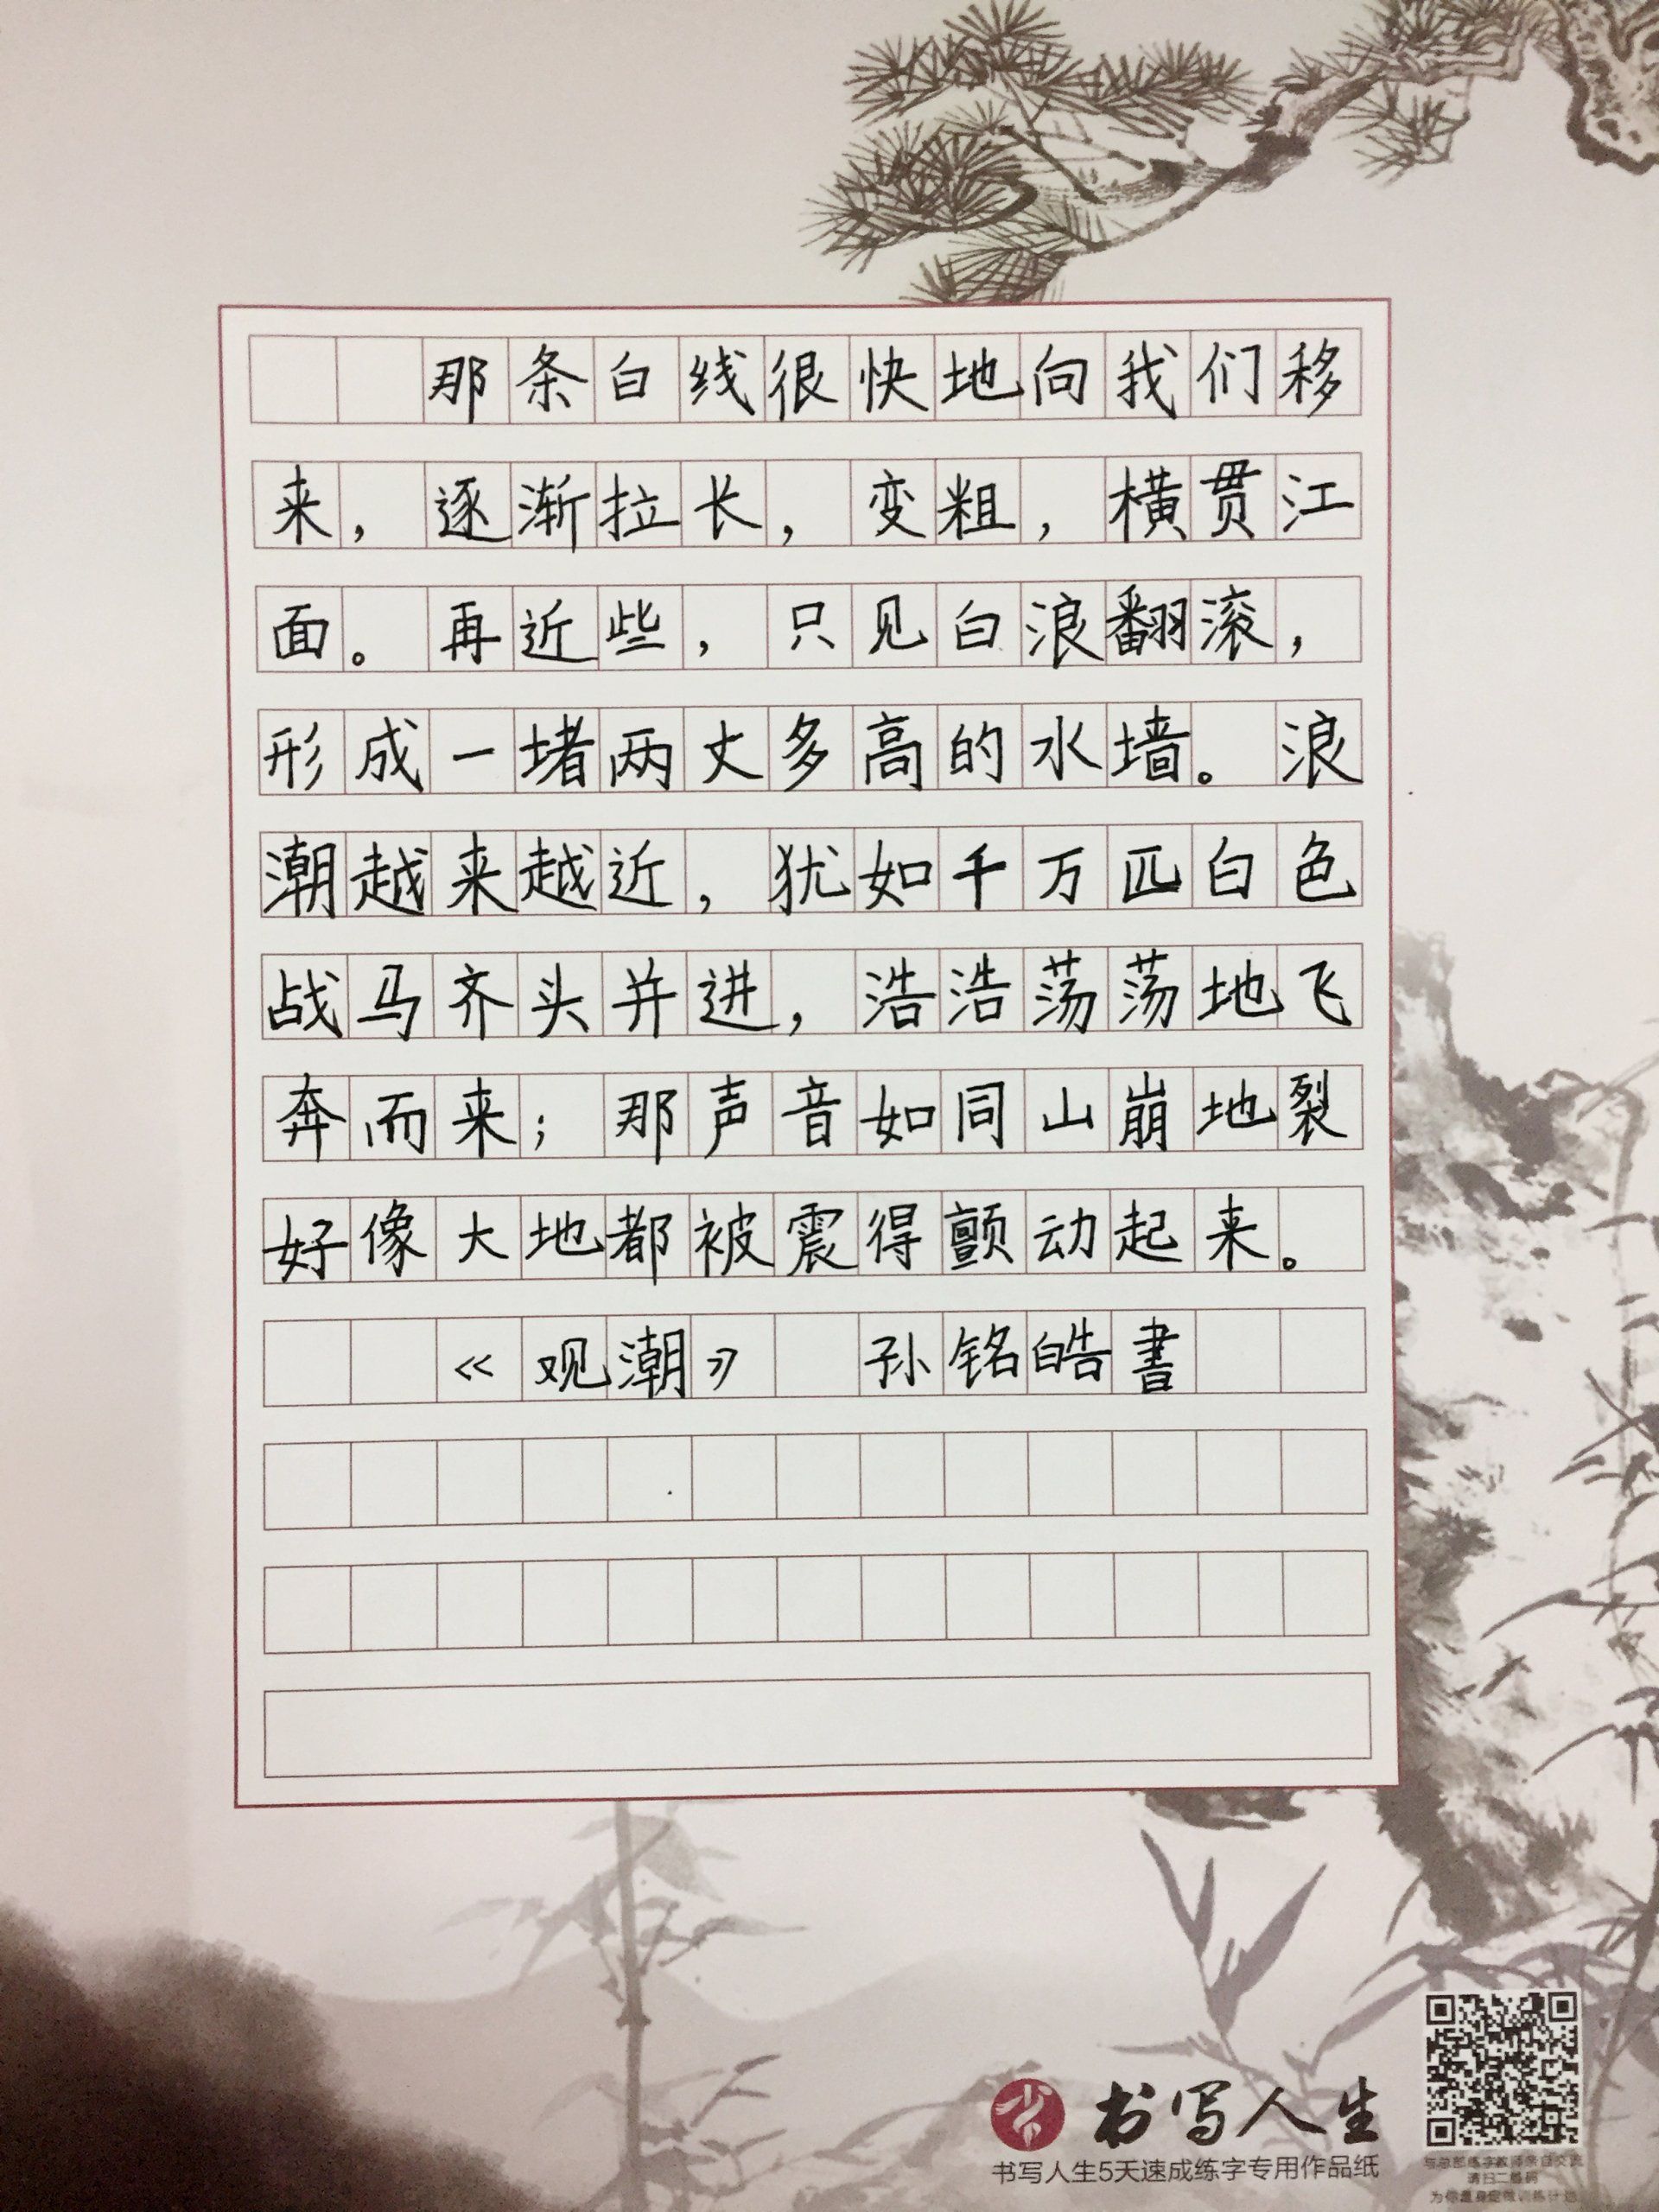 那条白线很快地向我们移
来，逐渐拉长，变粗，横贯江
面。再近些，只见白浪翻滚，
形成一堵两丈多高的水墙。浪
潮越来越近，犹如千万匹白色
战马齐头并进，浩浩荡荡地飞
奔而来；那声音如同山崩地裂
好像大地都被震得颤动起来。
《观潮》 孙铭皓書
书写人生
书写人生5天速成练字专用作品纸
与总部练字教师亲自交流
请扫二维码
为你量身定做训练计划